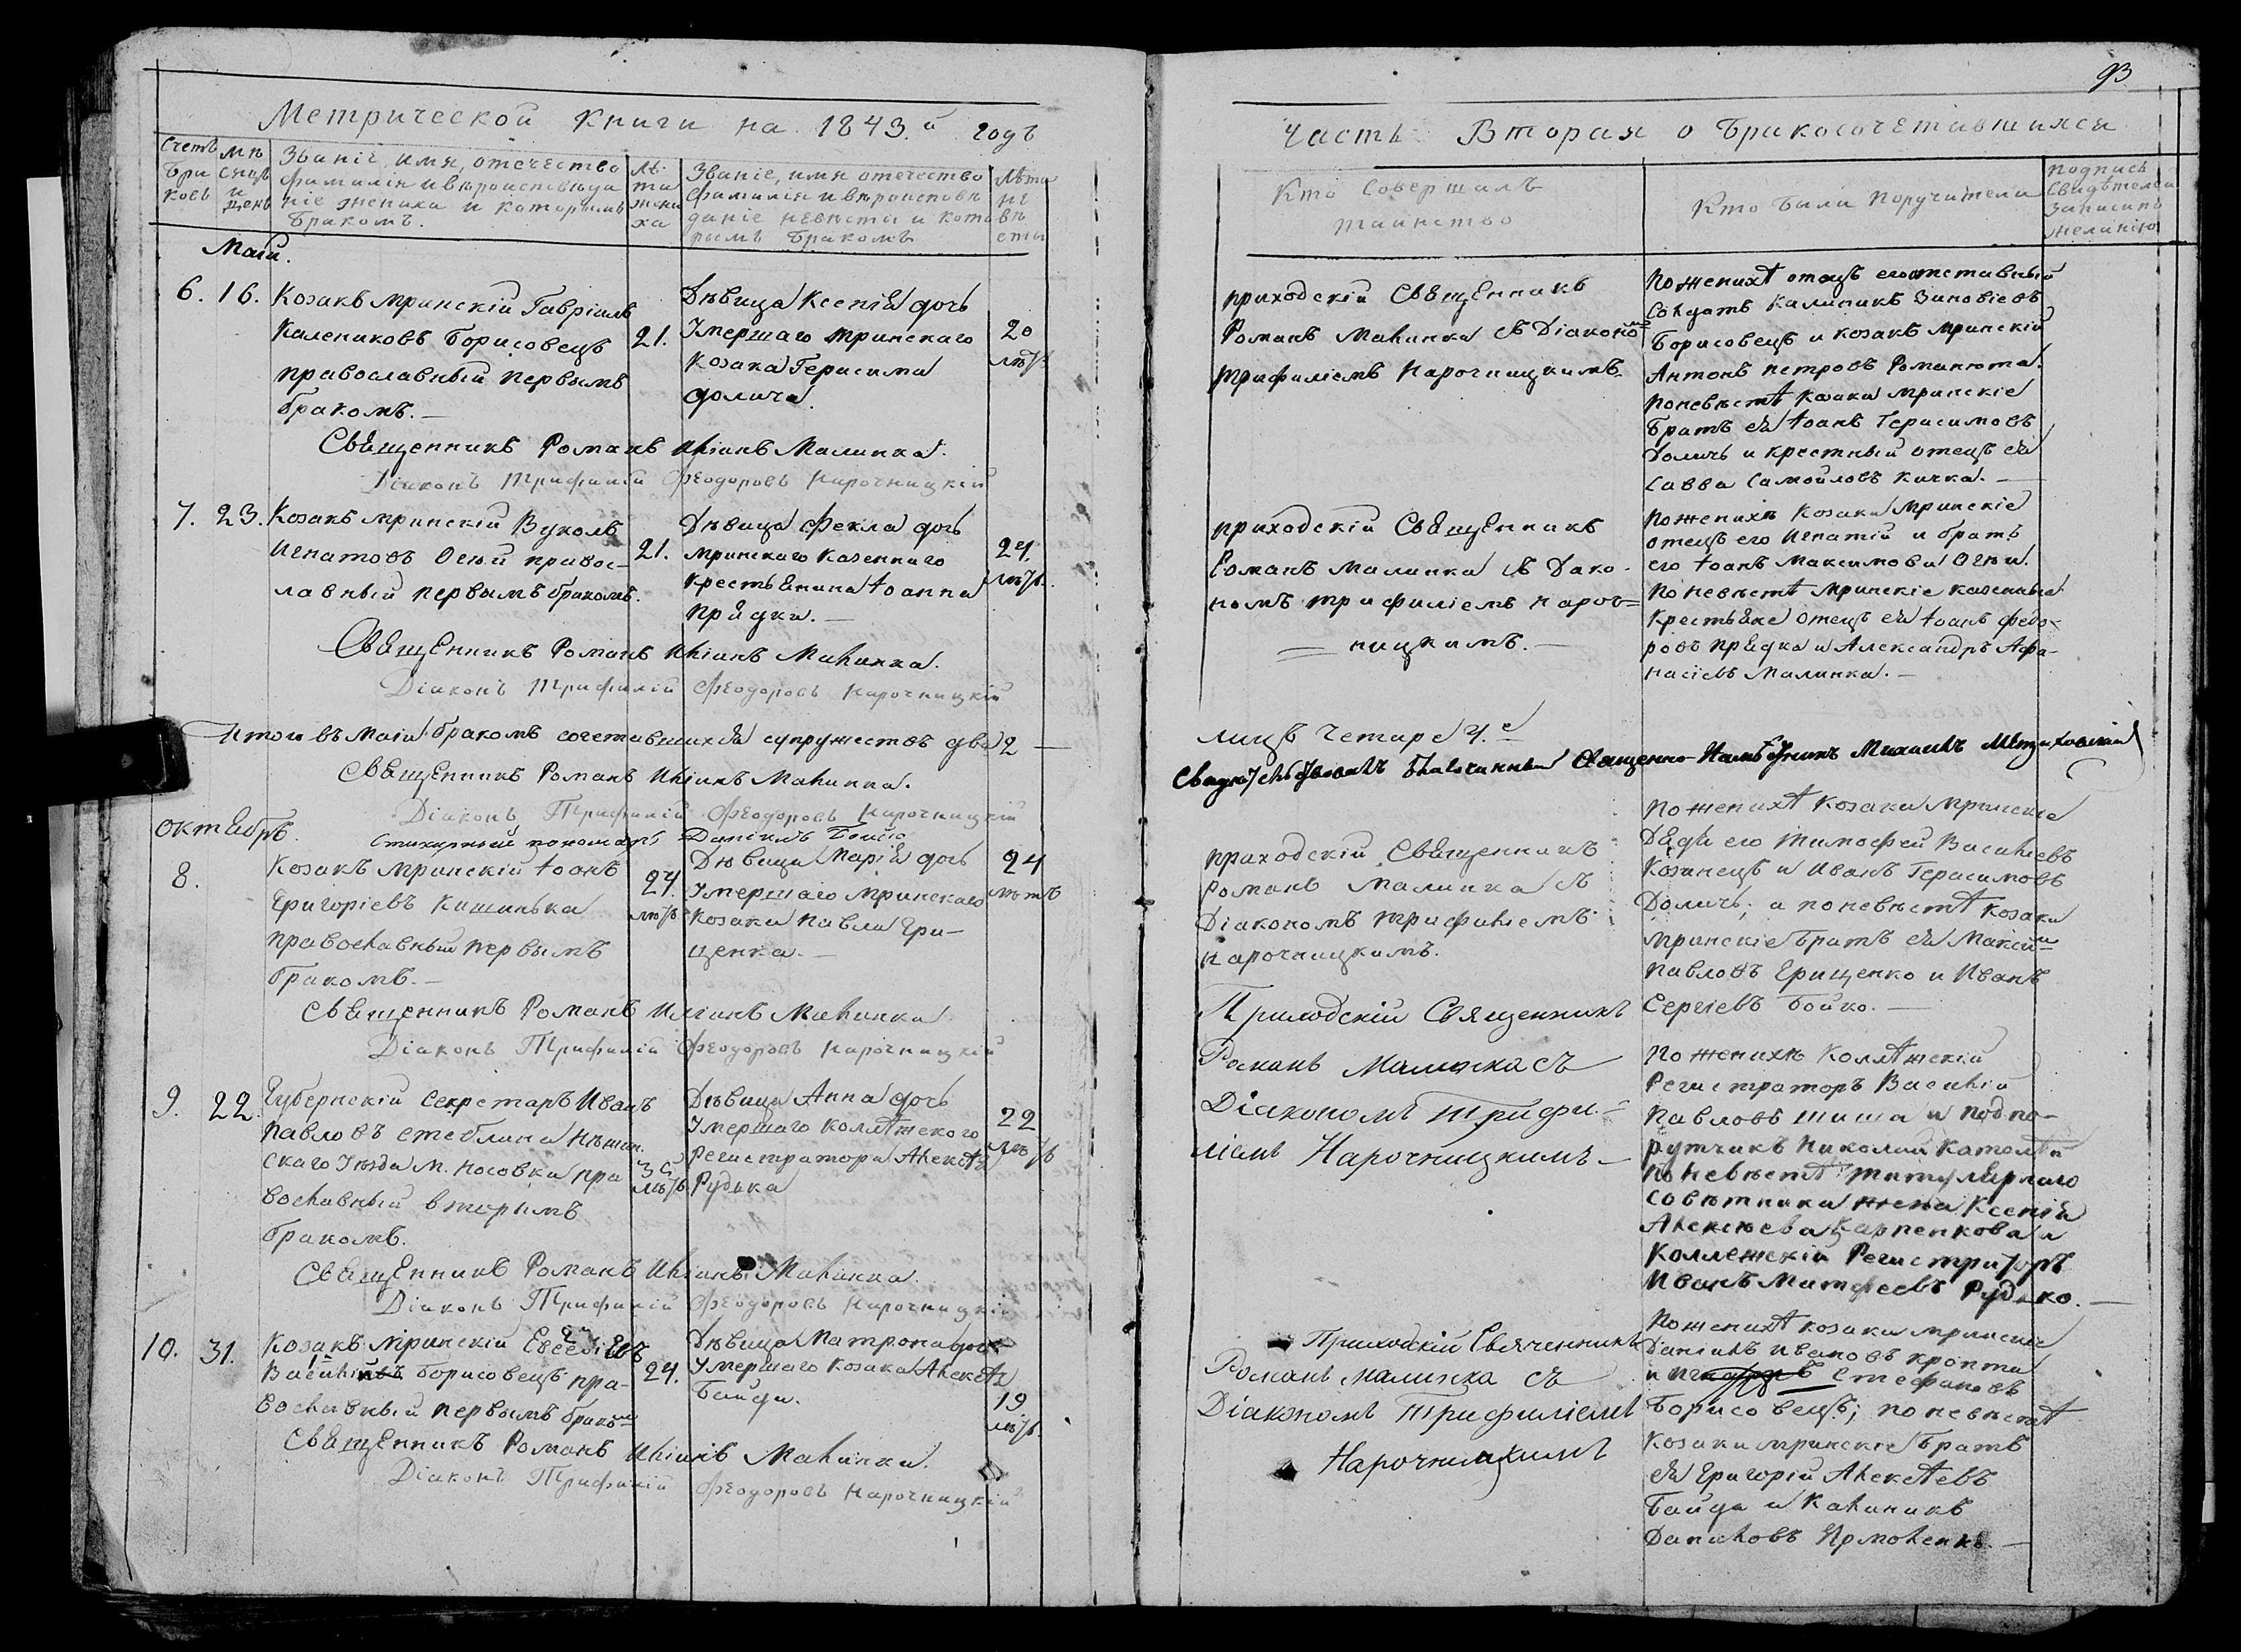 93
Метрической Книги на 1843.й годъ
Счетъ браковъ
Мѣсяцъ и день
Званіе, имя, отечество
фамилія и вѣроисповѣда
ніе жениха и которымъ
бракомъ.
Лѣта жениха
Званіе, имя отечество
фамилія и вѣроисповѣ
даніе невѣсты и кото
рымъ бракомъ
Лѣта невѣсты
Маія.
6. 16. Козакъ мринскій Гавріилъ
Калениковъ Борисовецъ
православный первымъ
бракомъ.—
21.
Дѣвица Ксенія дочь
Умершаго мринскаго
Козака Герасима
Долича.
20
лѣтъ
Священникъ Романъ Иліинъ Малинка.
Діаконъ Трифилій Феодоровъ Нарочницкій
7. 23. Козакъ мринскій Вуколъ
Игнатовъ Огюй правос-
лавный первымъ бракомъ.
21.
Дѣвица Фекла дочь
мринскаго казеннаго
крестьянина Іоанна
Прядки.—
24
лѣтъ.
Священникъ Романъ Иліинъ Малинка.
Діаконъ Трифилій Феодоровъ Нарочницкій
Итого въ маіи бракомъ сочетавшихся супружествъ два 2—
Священникъ Романъ Иліинъ Малинка.
Діаконъ Трифилій Феодоровъ Нарочницкій
Стихарный пономарь Даніилъ Бойко
Октябрь.
8.
Козакъ мринскій Іоанъ
Григоріевъ Кишинька
православный первымъ
бракомъ.—
24
лѣтъ
Дѣвица Марія дочь
Умершаго мринскаго
Козака Павла Гри-
щенка.—
24
лѣтъ
Священникъ Романъ Иліинъ Малинка
Діаконъ Трифилій Феодоровъ Нарочницкій
9. 22. Губернскій Секретарь Иванъ
Павловъ Стеблина Нѣжин.
скаго Уѣзда м. Носовка пра
вославный вторымъ
бракомъ.
35
лѣтъ
Дѣвица Анна дочь
Умершаго коллѣжскаго
Регистратора Алексѣя
Рудька
22
лѣтъ
Священникъ Романъ Иліинъ Малинка.
Діаконъ Трифилій Феодоровъ Нарочницкій
10. 31. Козакъ мринскій Евсевій
Борисовецъ пра-
вославный первымъ бракомъ
24.
Дѣвица Матрона дочь
Умершаго козака Алексѣя
Байди.
19
лѣтъ.
Священникъ Романъ Иліинъ Малинка.
Діаконъ Трифилій Феодоровъ Нарочницкій
Часть Вторая о бракосочетавшихся
Кто Совершалъ
таинство
Кто были поручители
подпись
Свидѣтелей
записи по
желанію
приходскій Священникъ
Романъ Малинка съ Діакономъ
Трифиліемъ Нарочницкимъ
По женихѣ отецъ его отставный
Солдатъ Калиникъ Зиновіевъ
Борисовецъ и козакъ мринскій
Антонъ Петровъ Романюта.
По невѣстѣ козаки мринскіе
братъ ея Іоанъ Герасимовъ
Доличь и крестный отецъ ея
Савва Самойловъ Качка.—
приходскій Священникъ
Романъ Малинка съ Діако-
номъ Трифиліемъ Нароч=
= ницкимъ.—
По женихѣ козаки мринскіе
отецъ его Игнатій и братъ
его Іоанъ Максимови Огюи.
По невѣстѣ мринскіе казенные
крестьяне отецъ ея Іоанъ Федо-
ровъ Прядка и Александръ Афа-
насіевъ Малинка.—
лицъ четыре 4.е
Свидѣтельствовалъ Благочинный Священно-Намѣстникъ Михаилъ
приходскій Священникъ
Романъ Малинка съ
Діакономъ Трифиліемъ
Нарочницкимъ.
По женихѣ козаки мринскіе
Дядя его Тимофей Василіевъ
Козинецъ и Иванъ Герасимовъ
Доличь; а по невѣстѣ козаки
мринскіе братъ ея Максимъ
Павловъ Грищенко и Иванъ
Сергіевъ Бойко.—
Приходскій Священникъ
Романъ Малинка съ
Діакономъ Трифи-
ліемъ Нарочницкимъ—
По женихѣ Коллѣжскій
Регистраторъ Василій
Павловъ Шиша и подпо-
рутчикъ Николай
По невѣстѣ Титулярнаго
Совѣтника жена Ксенія
Алексѣева Карпенкова и
Коллежскій Регистраторъ
Иванъ Матфеевъ Рудько.—
Приходскій Священникъ
Романъ Малинка съ
Діакономъ Трифиліемъ
Нарочницкимъ
По женихѣ козаки мринскіе
Даніилъ Ивановъ Кропта
и Стефановъ
Борисовецъ; по невѣстѣ
козаки мринскіе братъ
ея Григорій Алексѣевъ
Байда и Калиникъ
Даниловъ Ярмоленко.—